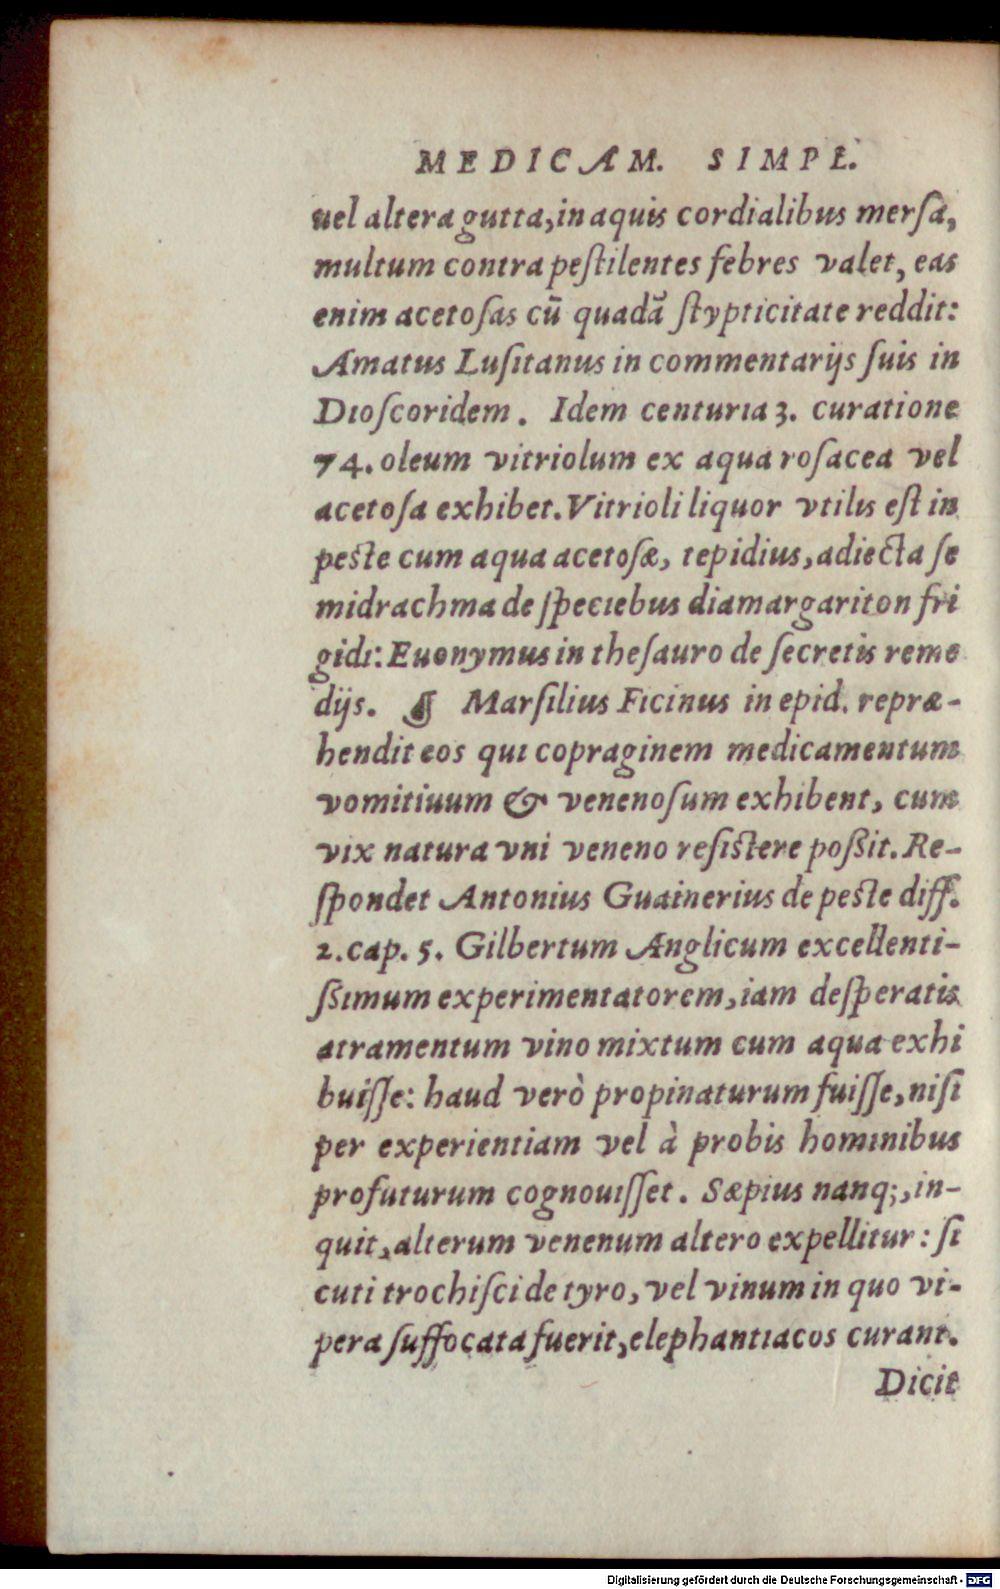 MEDICAM. SIMPL.
uel altera gutta, in aquis cordialibus mersa,
multum contra pestilentes febres valet, eas
enim acetosas cū quadā stypticitate reddit:
Amatus Lusitanus in commentarijs suis in
Dioscoridem. Idem centuria 3. curatione
74. oleum vitriolum ex aqua rosacea vel
acetosa exhibet. Vitrioli liquor vtilis est in
peste cum aqua acetosæ, tepidius, adiecta se
midrachma de speciebus diamargariton fri
gidi: Euonymus in thesauro de secretis reme
dijs. ¶ Marsilius Ficinus in epid. repræ-
hendit eos qui copraginem medicamentum
vomitiuum & venenosum exhibent, cum
vix natura vni veneno resistere poßit. Re-
spondet Antonius Guainerius de peste diff.
2. cap. 5. Gilbertum Anglicum excellenti-
ßimum experimentatorem, iam desperatis
atramentum vino mixtum cum aqua exhi
buisse: haud verò propinaturum fuisse, nisi
per experientiam vel à probis hominibus
profuturum cognouisset. Sæpius nanq;, in-
quit, alterum venenum altero expellitur: si
cuti trochisci de tyro, vel vinum in quo vi-
pera suffocata fuerit, elephantiacos curant.
Dicit
Digitalisierung gefördert durch die Deutsche Forschungsgemeinschaft - DFG